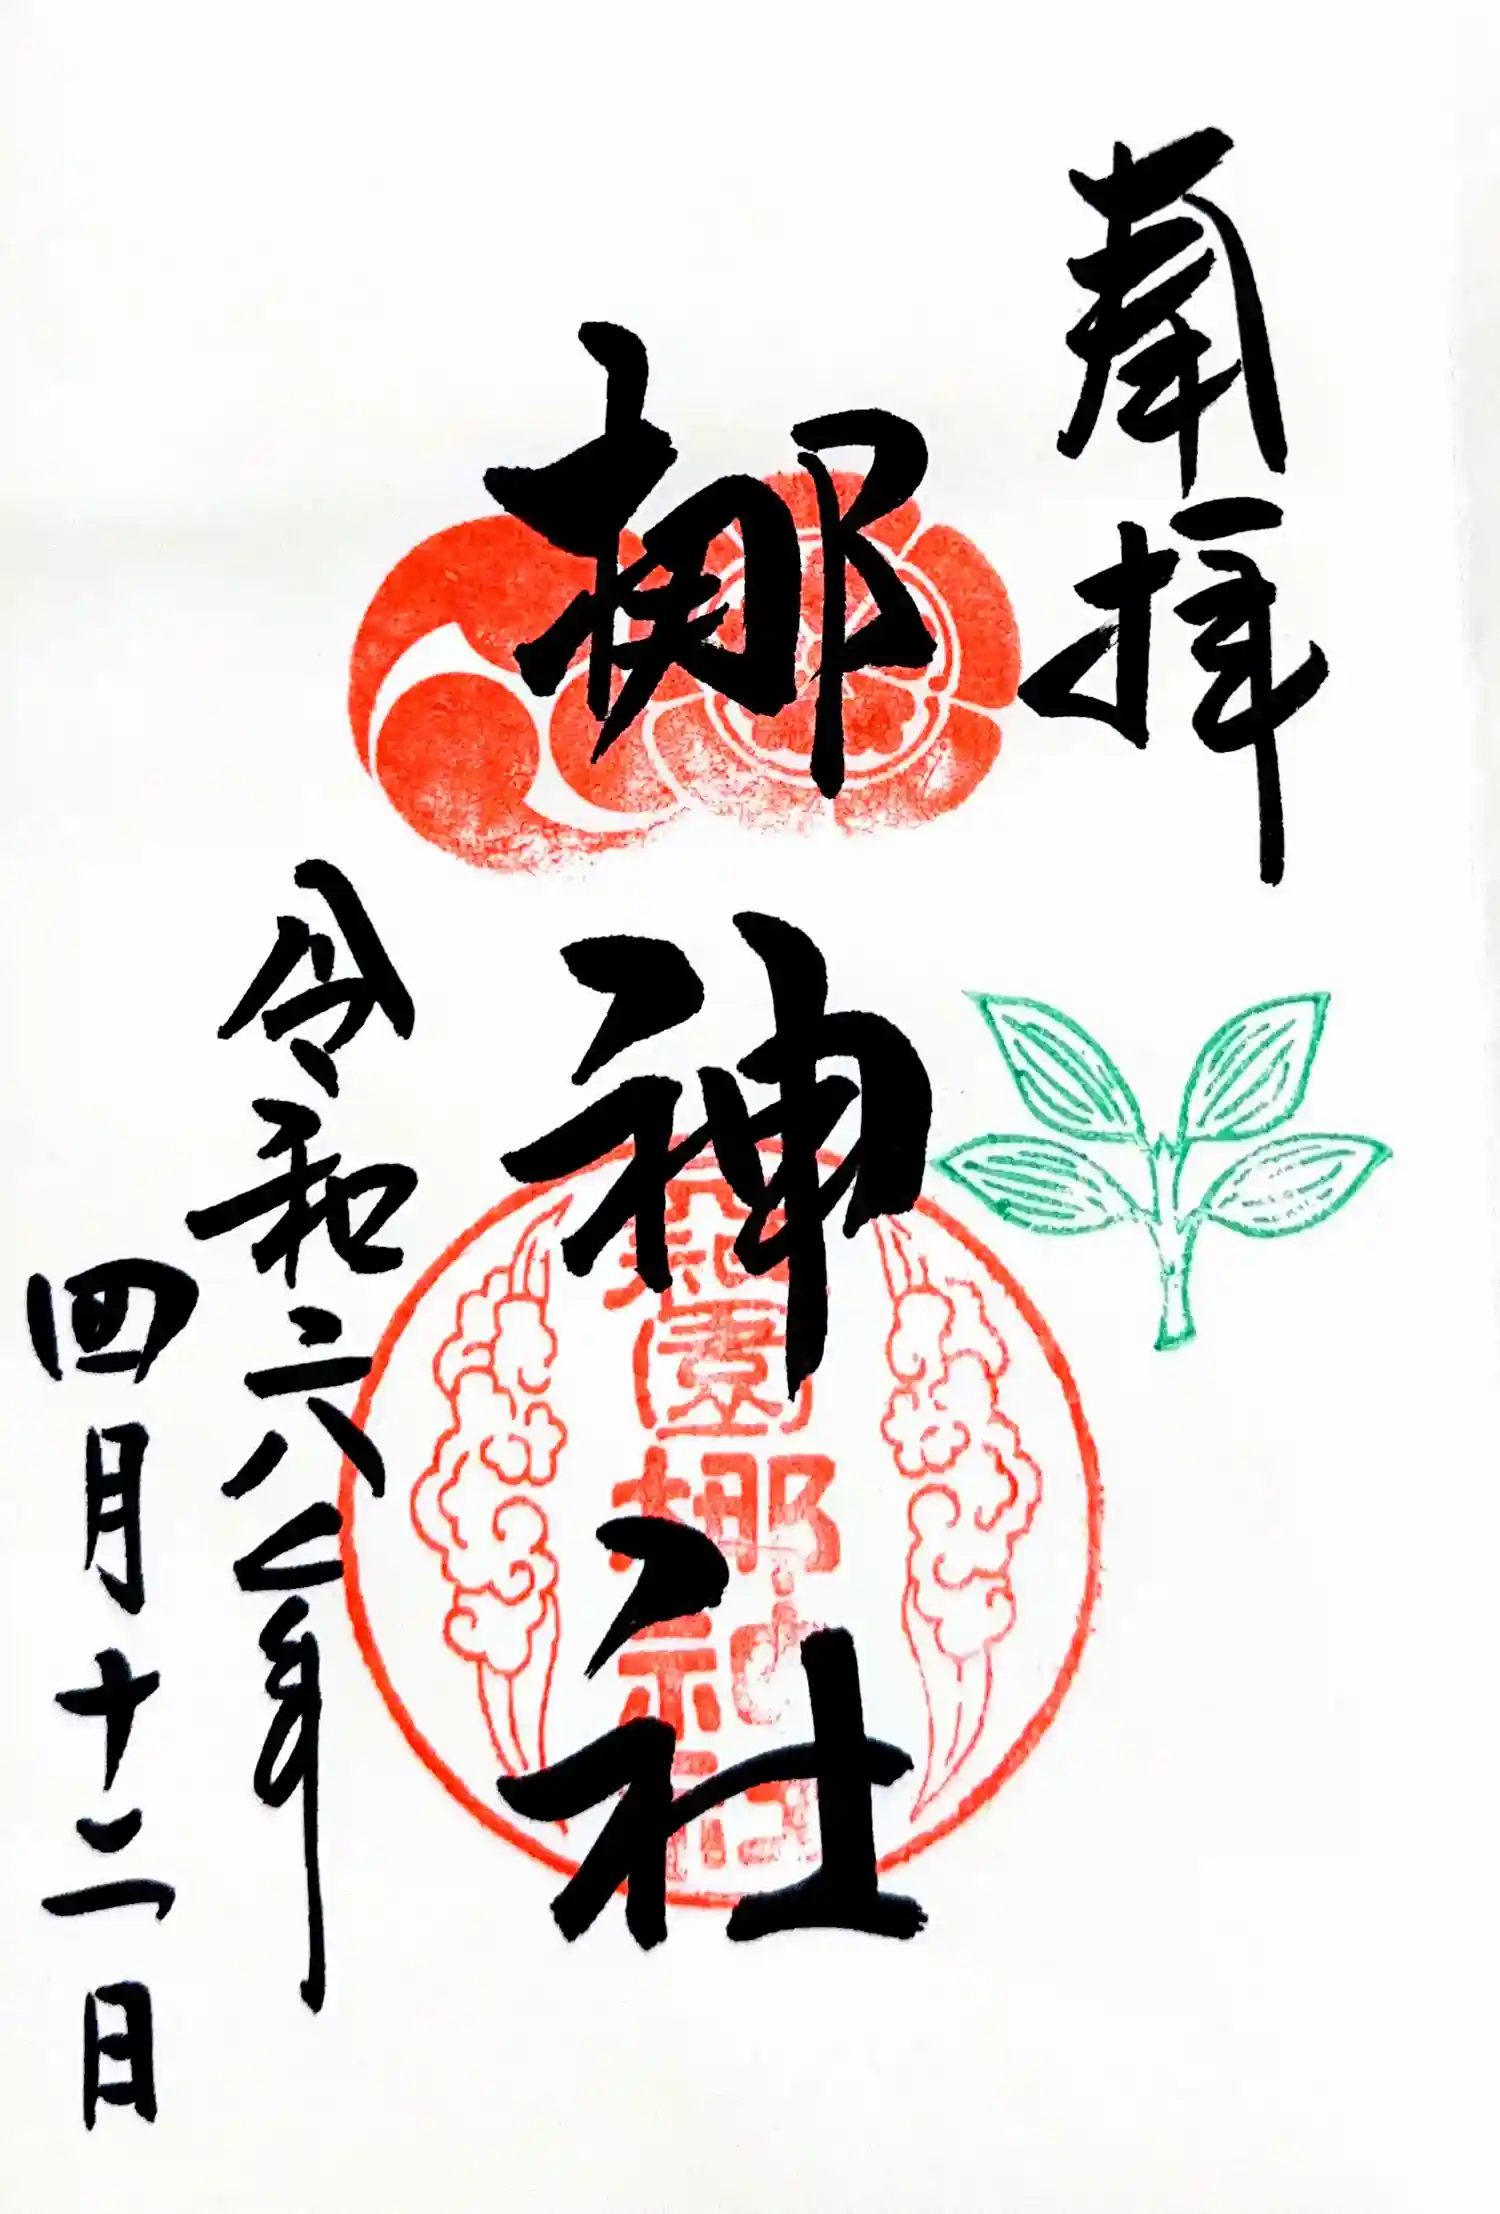 奉拝
梛神社
元祇園梛神社
令和六年
四月十二日